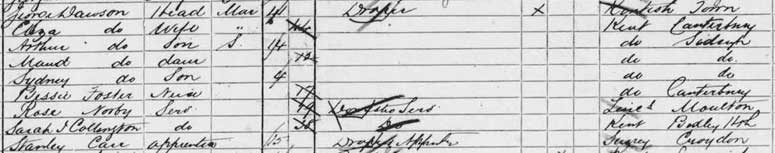 George Dawson Head Mar 44 Draper x Kentish Town
Eliza do Wife " 44 Kent Canterbury
Arthur do Son S. 14 do Sidcup
Maud do daur 12 do do
Sydney do Son 4 do do
Bessie Foster Niece 17 do Canterbury
Rose Norby Serv 19 Domestic Serv Moulton
Sarah J Collington do do Kent Bexley Hth
Stanley Carr apprentice 15 Draper's Apprentice Surrey Croydon